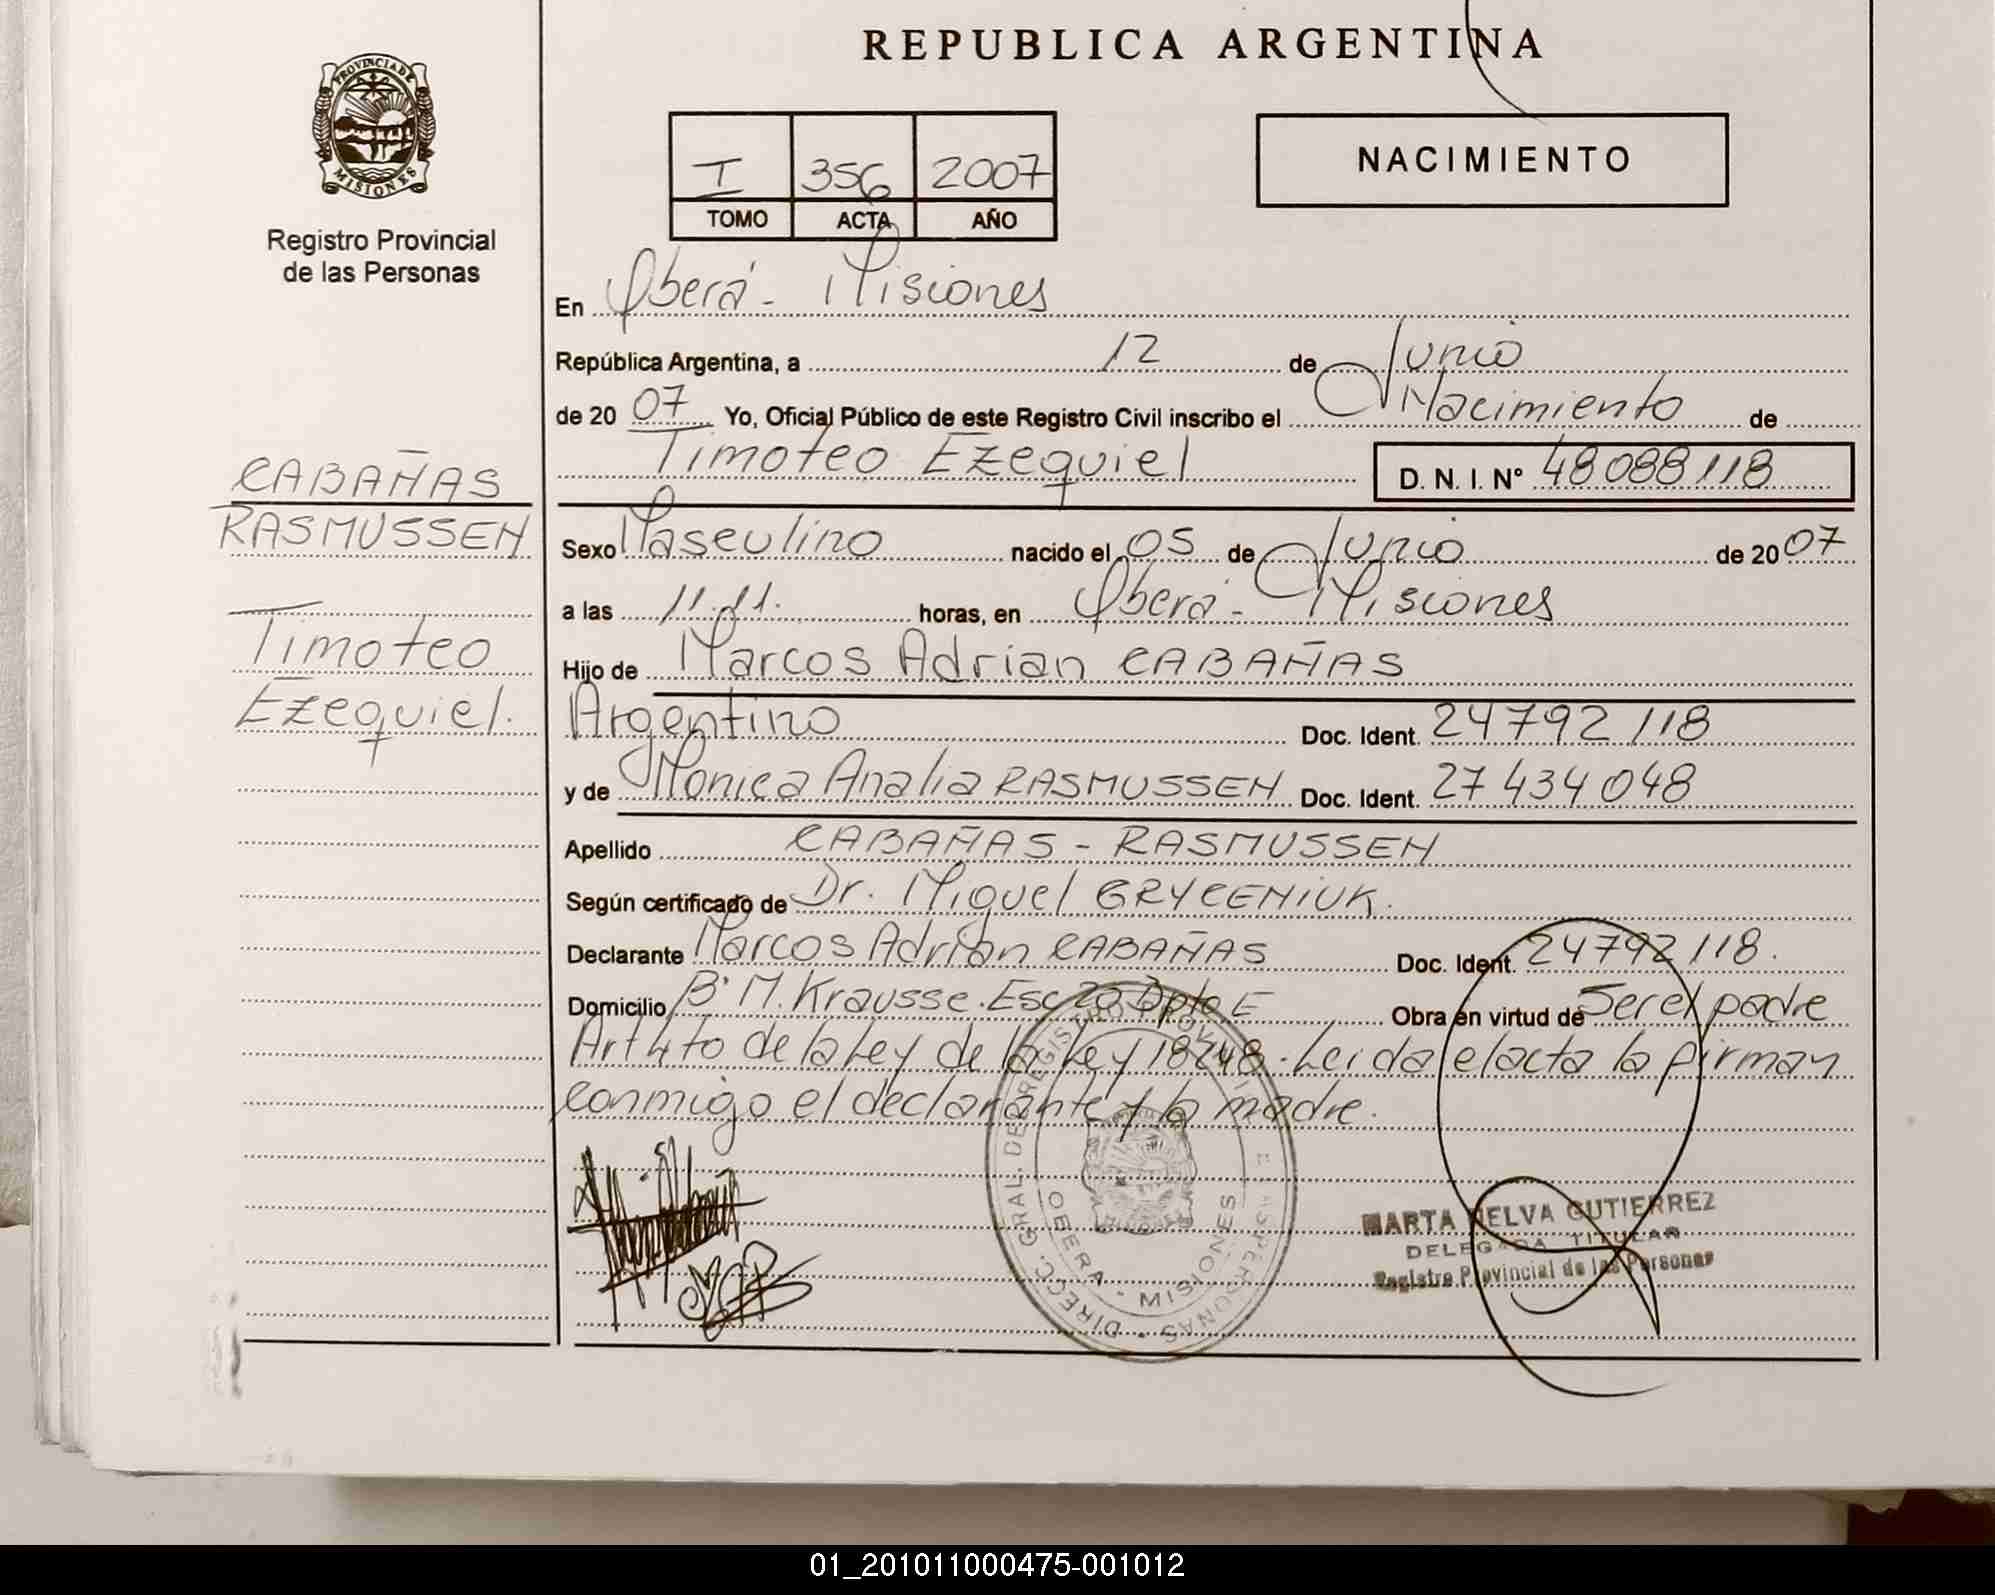 REPUBLICA ARGENTINA
PROVINCIA DE
MISIONES
Registro Provincial
de las Personas
I 356 2007
TOMO ACTA AÑO
NACIMIENTO
En Oberá - Misiones
República Argentina, a 12 de Junio
de 20 07 Yo, Oficial Público de este Registro Civil inscribo el Nacimiento de
Timoteo Ezequiel D. N. I. Nº 48088118
CABAÑAS
RASMUSSEN
Timoteo
Ezequiel.
Sexo Masculino nacido el 05 de Junio de 20 07
a las 11.11. horas, en Oberá - Misiones
Hijo de Marcos Adrian CABAÑAS
Argentino Doc. Ident. 24792118
y de Monica Analia RASMUSSEN Doc. Ident. 27434048
Apellido CABAÑAS - RASMUSSEN
Según certificado de Dr. Miguel GRYCENIUK.
Declarante Marcos Adrian CABAÑAS Doc. Ident. 24792118.
Domicilio B° M. Krausse. Esc 20 Dpto E Obra en virtud de Ser el padre
Art 4to de la Ley de la Ley 18248. Leida el acta la firman
conmigo el declarante y la madre.
DIRECC. GRAL. DE REGISTRO PROVINCIAL DE LAS PERSONAS
OBERA - MISIONES
MARTA NELVA GUTIERREZ
DELEGADA TITULAR
Registro Provincial de las Personas
01_201011000475-001012